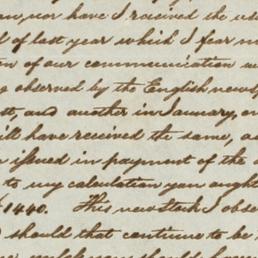 nor have I received the
of last year which I fear
of our communication
observed by the English news
and another in January,
have received the same,
issued in payment of the
to my calculation you ought
$1440. This new Stock I
should that continue to be